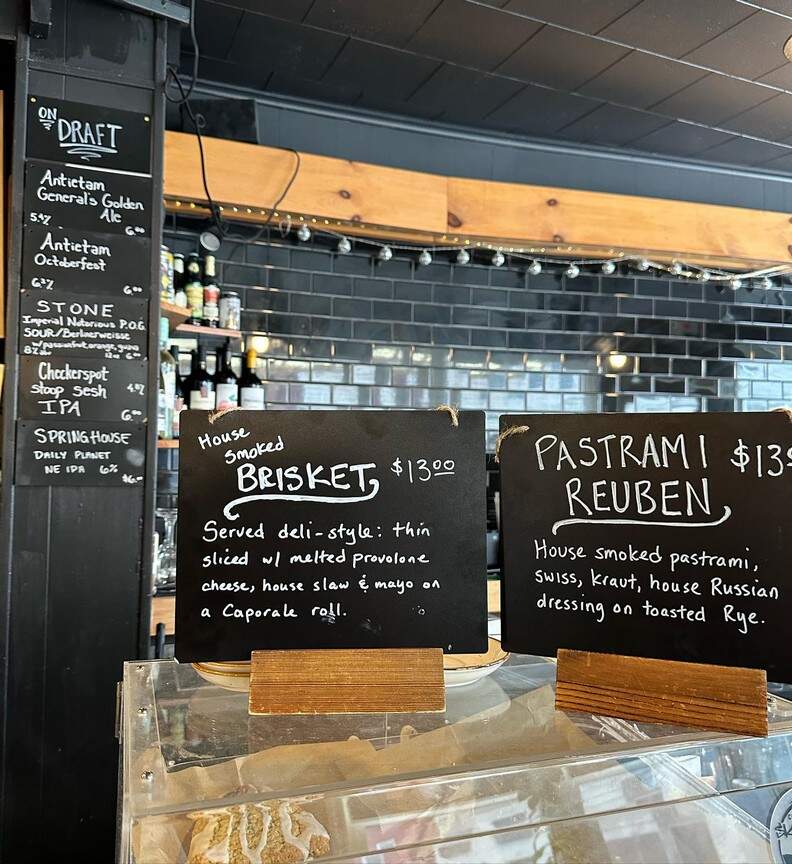 ON
DRAFT
Antietam
General's Golden
Ale
5.4% 6.00
Antietam
Octoberfest
6.2% 6.00
STONE
Imperial Notorious P.O.G.
SOUR/Berlinerweisse
w/passionfruit, orange, guava
8% abv 12oz 6.00
Checkerspot
Stoop Sesh 4.8%
IPA
6.00
SPRINGHOUSE
DAILY PLANET
NE IPA 6%
$6.00
House
smoked
BRISKET $13.00
Served deli-style: thin
sliced w/ melted provolone
cheese, house slaw & mayo on
a Caporale roll.
PASTRAMI $13
REUBEN
House smoked pastrami,
swiss, kraut, house Russian
dressing on toasted Rye.